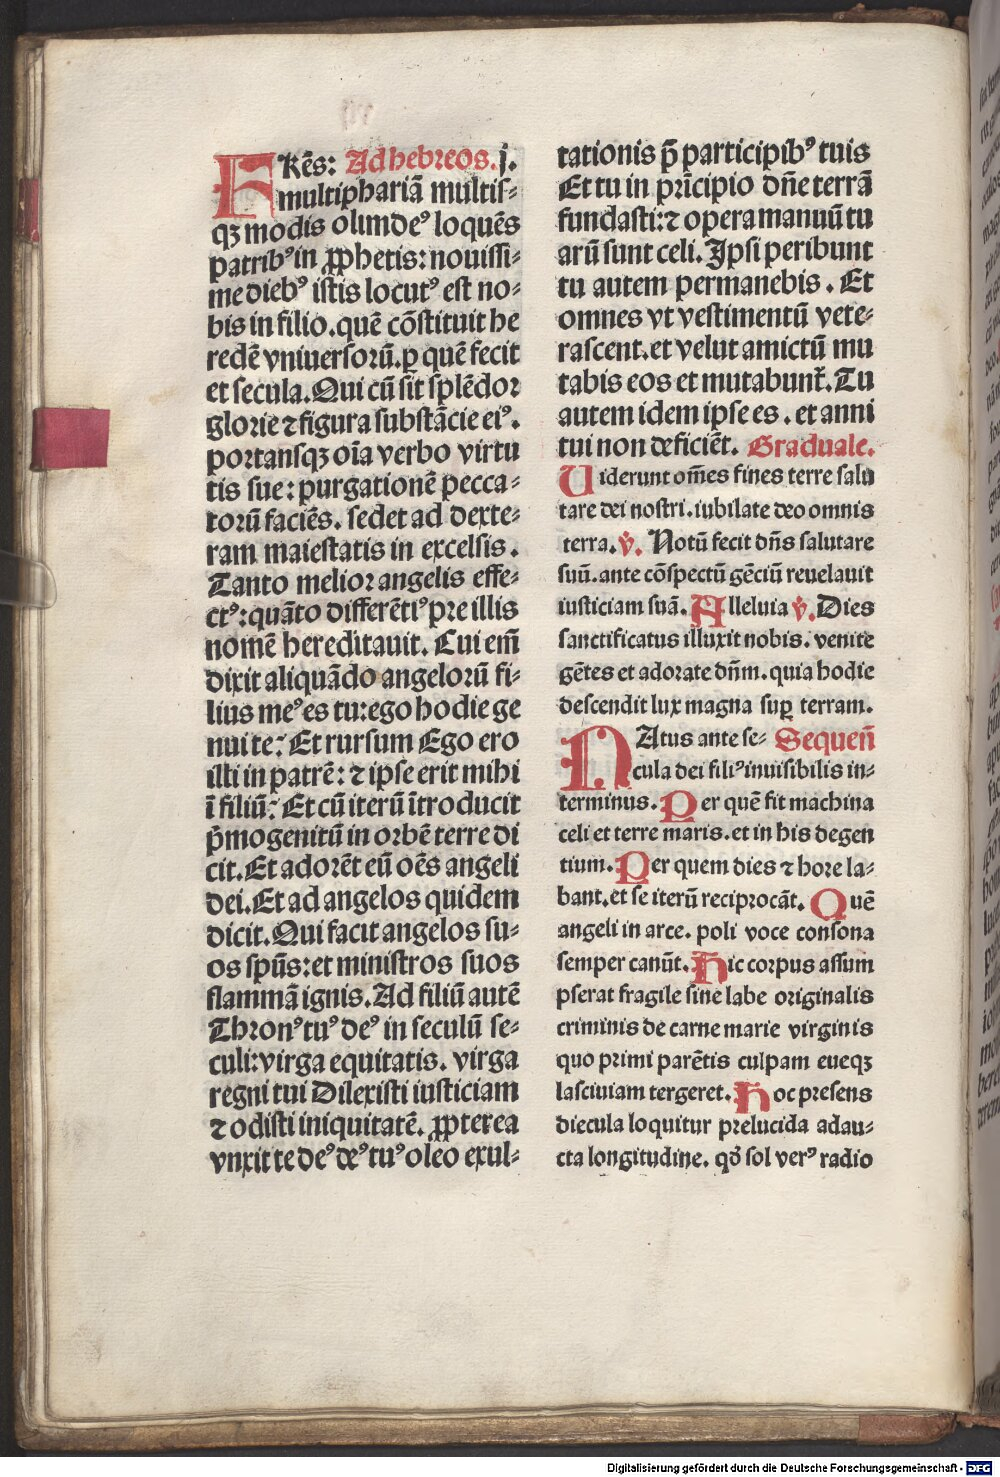 FRēs: Ad hebreos. j.
multiphariā multis-
qȝ modis olim deꝰ loquēs
patribꝰ in ꝓphetis: nouissi-
me diebꝰ istis locutꝰ est no-
bis in filio. quē cōstituit he
redē vniuersorū. ꝑ quē fecit
et secula. Qui cū sit splēdor
glorie ⁊ figura substācie eiꝰ.
portansqȝ oīa verbo virtu
tis sue: purgationē pecca-
torū faciēs. sedet ad dexte-
ram maiestatis in excelsis.
Tanto melior angelis effe-
ctꝰ: quāto differētiꝰ pre illis
nomē hereditauit. Cui em̄
dixit aliquādo angelorū fi-
lius meꝰ es tu: ego hodie ge
nui te? Et rursum Ego ero
illi in patrē: ⁊ ipse erit mihi
ī filiū? Et cū iterū ītroducit
p̄mogenitū in orbē terre di
cit. Et adorēt eū oēs angeli
dei. Et ad angelos quidem
dicit. Qui facit angelos su-
os spūs: et ministros suos
flammā ignis. Ad filiū autē
Thronꝰ tuꝰ deꝰ in seculū se-
culi: virga equitatis. virga
regni tui Dilexisti iusticiam
⁊ odisti iniquitatē. ꝓpterea
vnxit te deꝰ deꝰ tuꝰ oleo exul-
tationis p̄ participibꝰ tuis
Et tu in prīcipio dn̄e terrā
fundasti: ⁊ opera manuū tu
arū sunt celi. Ipsi peribunt
tu autem permanebis. Et
omnes vt vestimentū vete-
rascent. et velut amictū mu
tabis eos et mutabunt̄. Tu
autem idem ipse es. et anni
tui non deficiēt. Graduale.
Uiderunt om̄es fines terre salu
tare dei nostri. iubilate deo omnis
terra. v̄. Notū fecit dn̄s salutare
suū. ante cōspectū gēciū reuelauit
iusticiam suā. Alleluia v̄. Dies
sanctificatus illuxit nobis. venite
gētes et adorate dn̄m. quia hodie
descendit lux magna suꝑ terram.
NAtus ante se- Sequen̄
cula dei filiꝰ inuisibilis in-
terminus. Per quē fit machina
celi et terre maris. et in his degen
tium. Per quem dies ⁊ hore la-
bant. et se iterū reciprocāt. Quē
angeli in arce. poli voce consona
semper canūt. Hic corpus assum
pserat fragile sine labe originalis
criminis de carne marie virginis
quo primi parētis culpam eueqȝ
lasciuiam tergeret. Hoc presens
diecula loquitur prelucida adau-
cta longitudine. qō sol verꝰ radio
Digitalisierung gefördert durch die Deutsche Forschungsgemeinschaft - DFG